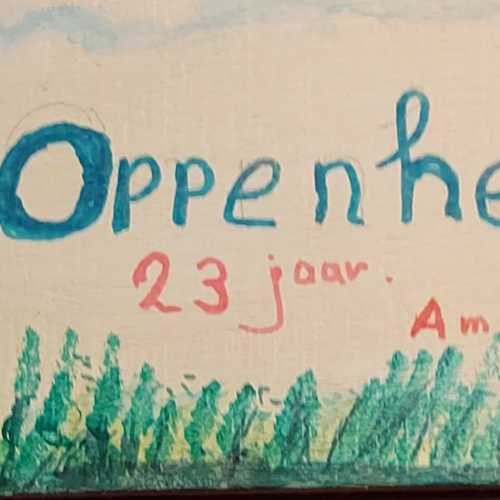 Oppenhe
23 jaar.
Am